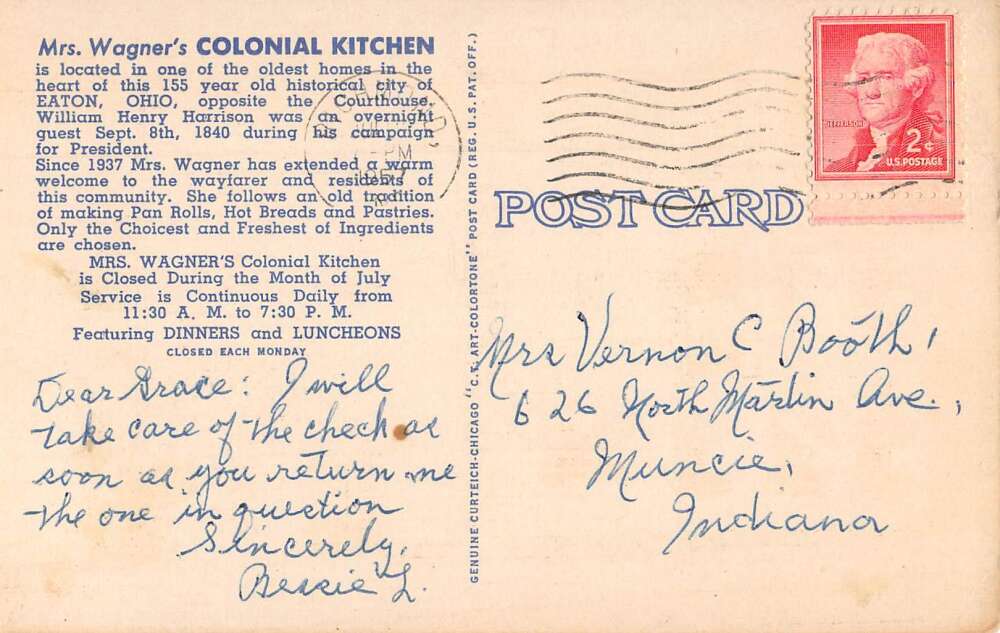 Mrs. Wagner's COLONIAL KITCHEN
is located in one of the oldest homes in the
heart of this 155 year old historical city of
EATON, OHIO, opposite the Courthouse.
William Henry Harrison was an overnight
guest Sept. 8th, 1840 during his campaign
for President.
Since 1937 Mrs. Wagner has extended a warm
welcome to the wayfarer and residents of
this community. She follows an old tradition
of making Pan Rolls, Hot Breads and Pastries.
Only the Choicest and Freshest of Ingredients
are chosen.
MRS. WAGNER'S Colonial Kitchen
is Closed During the Month of July
Service is Continuous Daily from
11:30 A. M. to 7:30 P. M.
Featuring DINNERS and LUNCHEONS
CLOSED EACH MONDAY
Dear Grace: I will
take care of the check as
soon as you return me
the one in question
Sincerely,
Bessie L.
GENUINE CURTEICH-CHICAGO "C.T. ART-COLORTONE" POST CARD (REG. U.S. PAT. OFF.)
PM
JEFFERSON
2¢
U.S. POSTAGE
POST CARD
Mrs Vernon C Booth,
626 North Martin Ave.,
Muncie,
Indiana